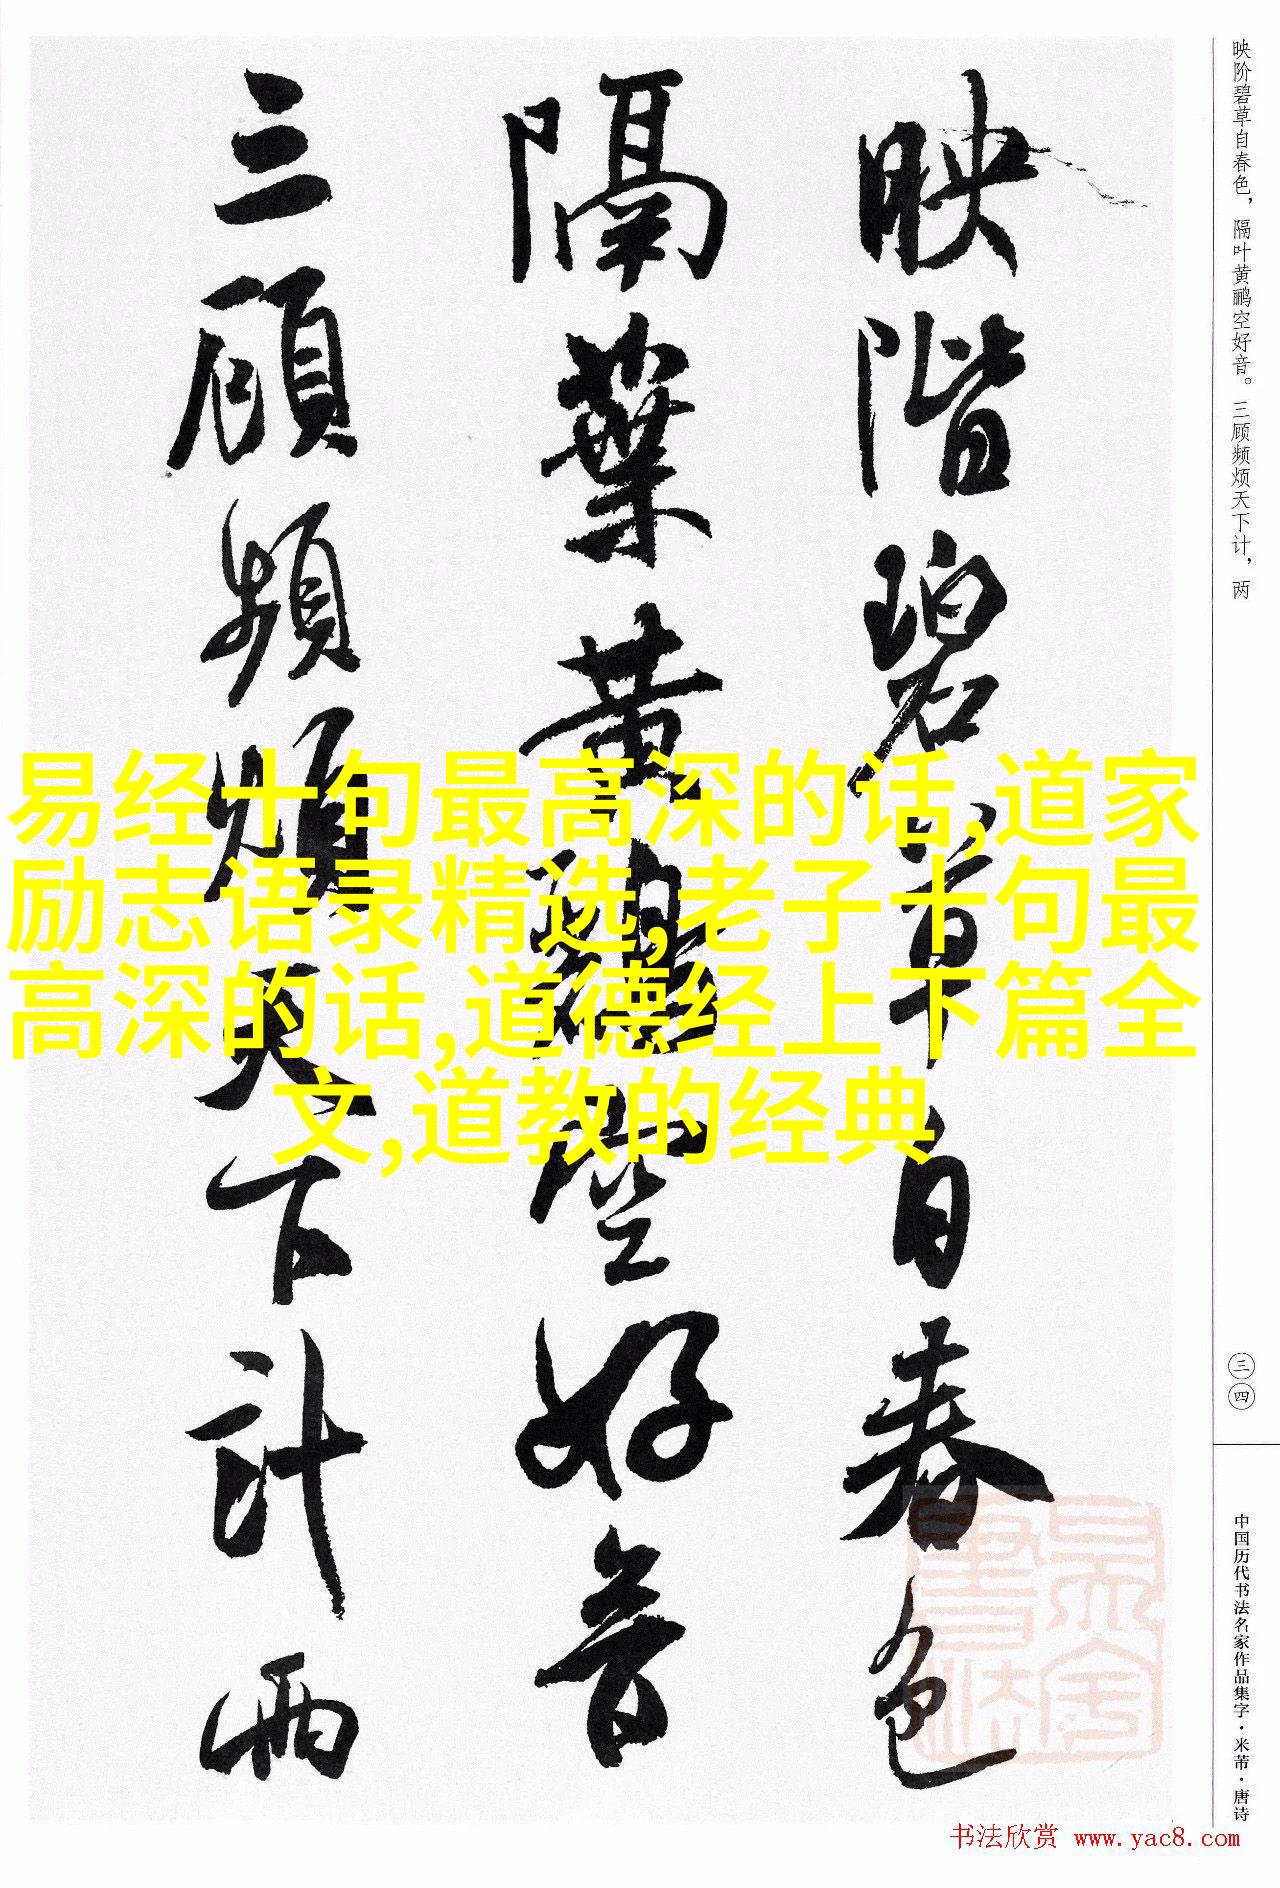 映階碧草自春色
隔葉黄鸝空好音
三顧頻煩天下計兩
映阶碧草自春色，隔叶黄鹂空好音。三顾频烦天下计，两
三四
中国历代书法名家作品集字·米芾·唐诗
易经十句最高深的话,道家
励志语录精选,老子十句最
高深的话,道德经上下篇全
文,道教的经典
书法欣赏 www.yac8.com